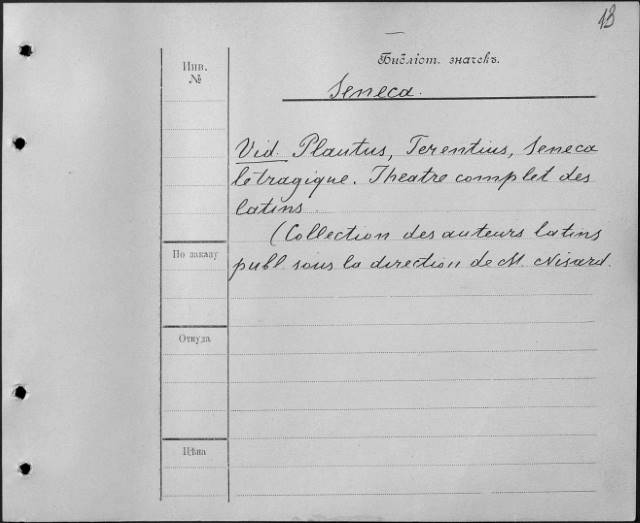 18
Библіот. значекъ.
Инв.
№
Seneca.
Vid. Plautus, Terentius, Seneca
le tragique. Theatre complet des
latins.
(Collection des auteurs latins
publ. sous la direction de M. Nisard.
По заказу
Откуда
Цѣна